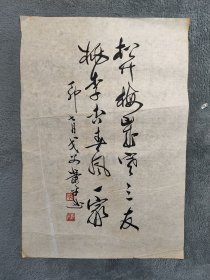 松竹梅歲寒三友
桃李杏春风一家
卯七月